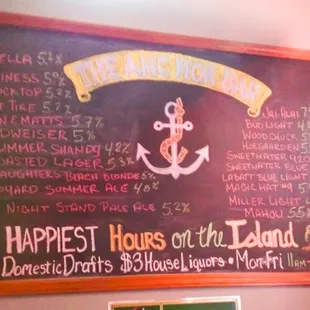 THE ANCHOR BAR
ELLA 5.2%
INESS 5%
CKTOP 5.2%
T TIRE 5.2%
NEMATTS 5.7%
DWEISER 5%
UMMER SHANDY 4.2%
OASTED LAGER 5.3%
AUGHTERS BEACH BLONDE 5%
OYARD SUMMER ALE 4.8%
NIGHT STAND PALE ALE 5.2%
JAI ALAI 7
BUD LIGHT 4
WOOD CHUCK 5
HOEGAARDEN
SWEETWATER 420
SWEETWATER BLUE
LABATT BLUE LIGHT
MAGIC HAT #9 5
MILLER LIGHT
MAHOU 5.5%
HAPPIEST HOURS on the Island &
DOMESTIC DRAFTS $3 HOUSE LIQUORS • MON-FRI 11AM-